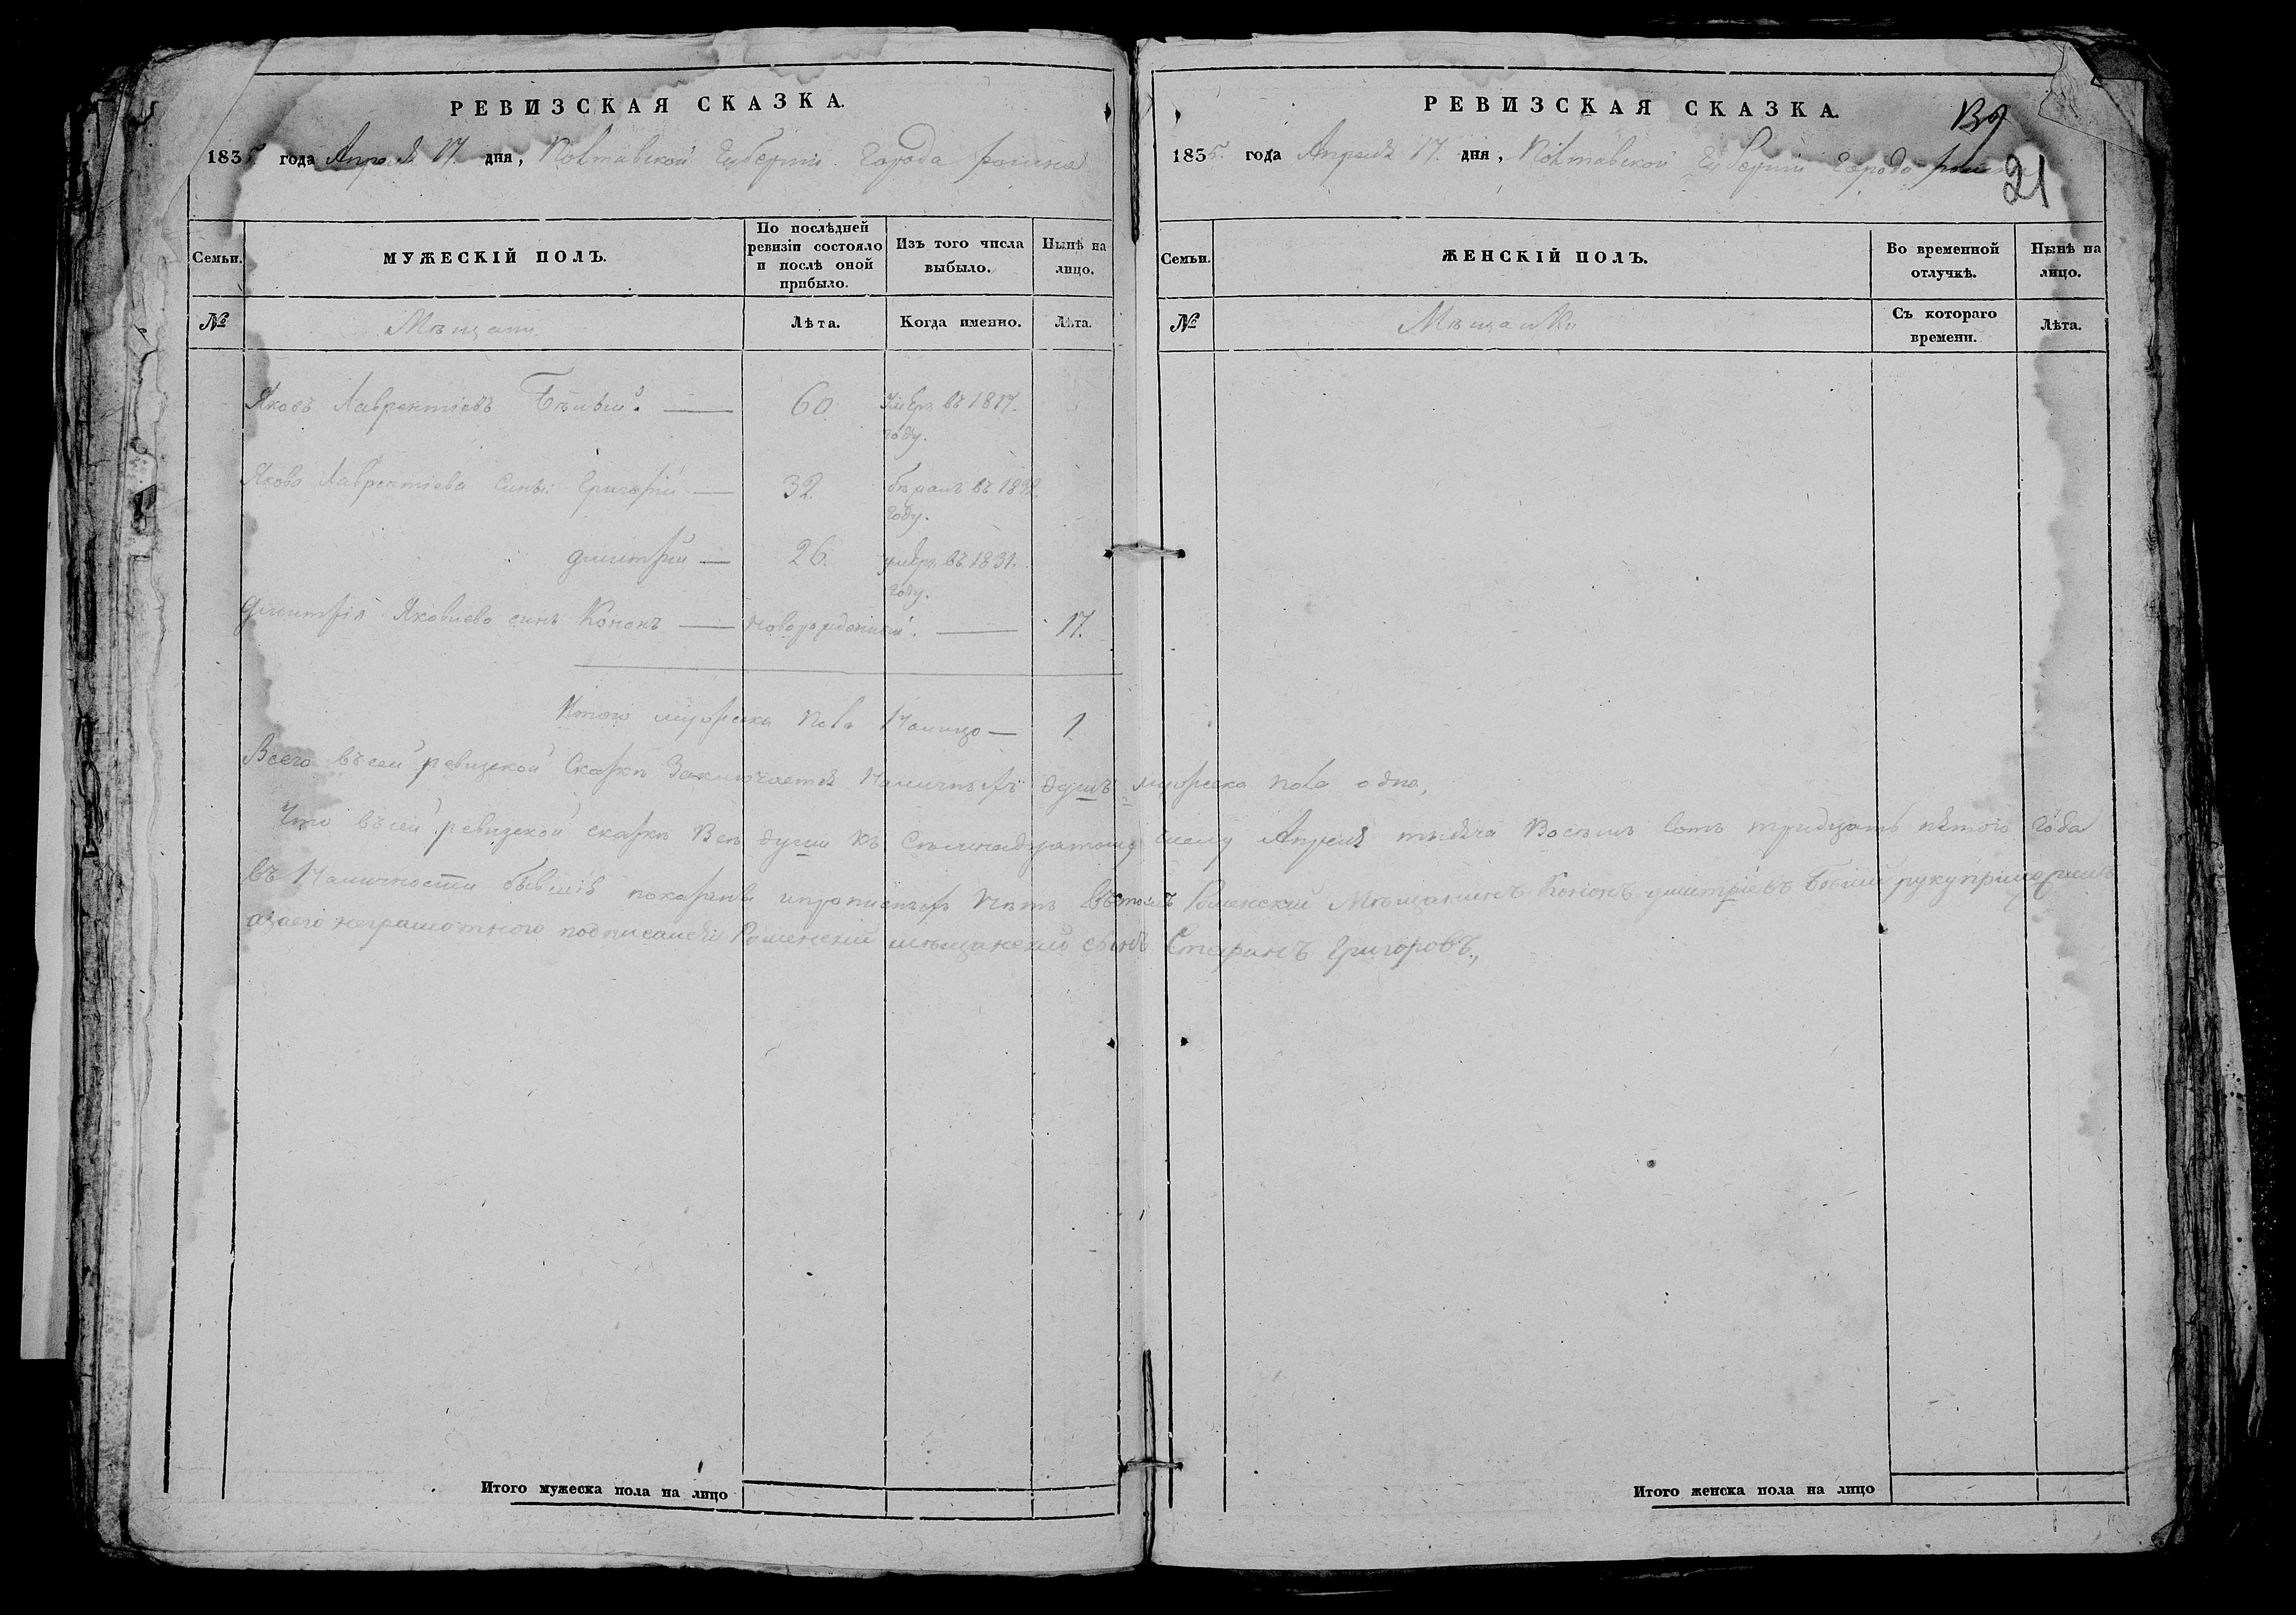 РЕВИЗСКАЯ СКАЗКА.
1835 года Апреля 17. дня, Полтавской Губерніи Города Ромна
Семьи.
МУЖЕСКІЙ ПОЛЪ.
По послѣдней ревизіи состояло и послѣ оной прибыло.
Изъ того числа выбыло.
Нынѣ на лицо.
№
Мѣщани
Лѣта.
Когда именно.
Лѣта.
Яковъ Лаврентіевъ 60. умеръ въ 1817. году.
Якова Лаврентіева сины: Григорій — 32. году.
Дмитрій — 26. умеръ въ 1831. году.
Дмитрія Яковлева синъ Кононъ — новорожденный. — 17.
Итого мужеска пола налицо — 1
РЕВИЗСКАЯ СКАЗКА.
21
1835. года Апреля 17. дня, Полтавской Губерніи Города Ромна
Семьи.
ЖЕНСКІЙ ПОЛЪ.
Во временной отлучкѣ.
Нынѣ на лицо.
№
Мѣщанки
Съ котораго времени.
Лѣта.
Всего въ сей ревизской Сказкѣ Заключается Наличныхъ душъ мужеска пола одна,
Что въ сей ревизской сказкѣ Всѣ души къ Семнадцатому числу Апреля тысяча Восемь Сотъ тридцать пятого года
въ Наличности бывшія показаны и прописныхъ Нѣтъ въ томъ Роменский Мѣщанинъ Кононъ Дмитріевъ руку приложилъ
а за его неграмотного подписался Роменский мѣщанский синъ Стефанъ Григоровъ.,
Итого мужеска пола на лицо
Итого женска пола на лицо